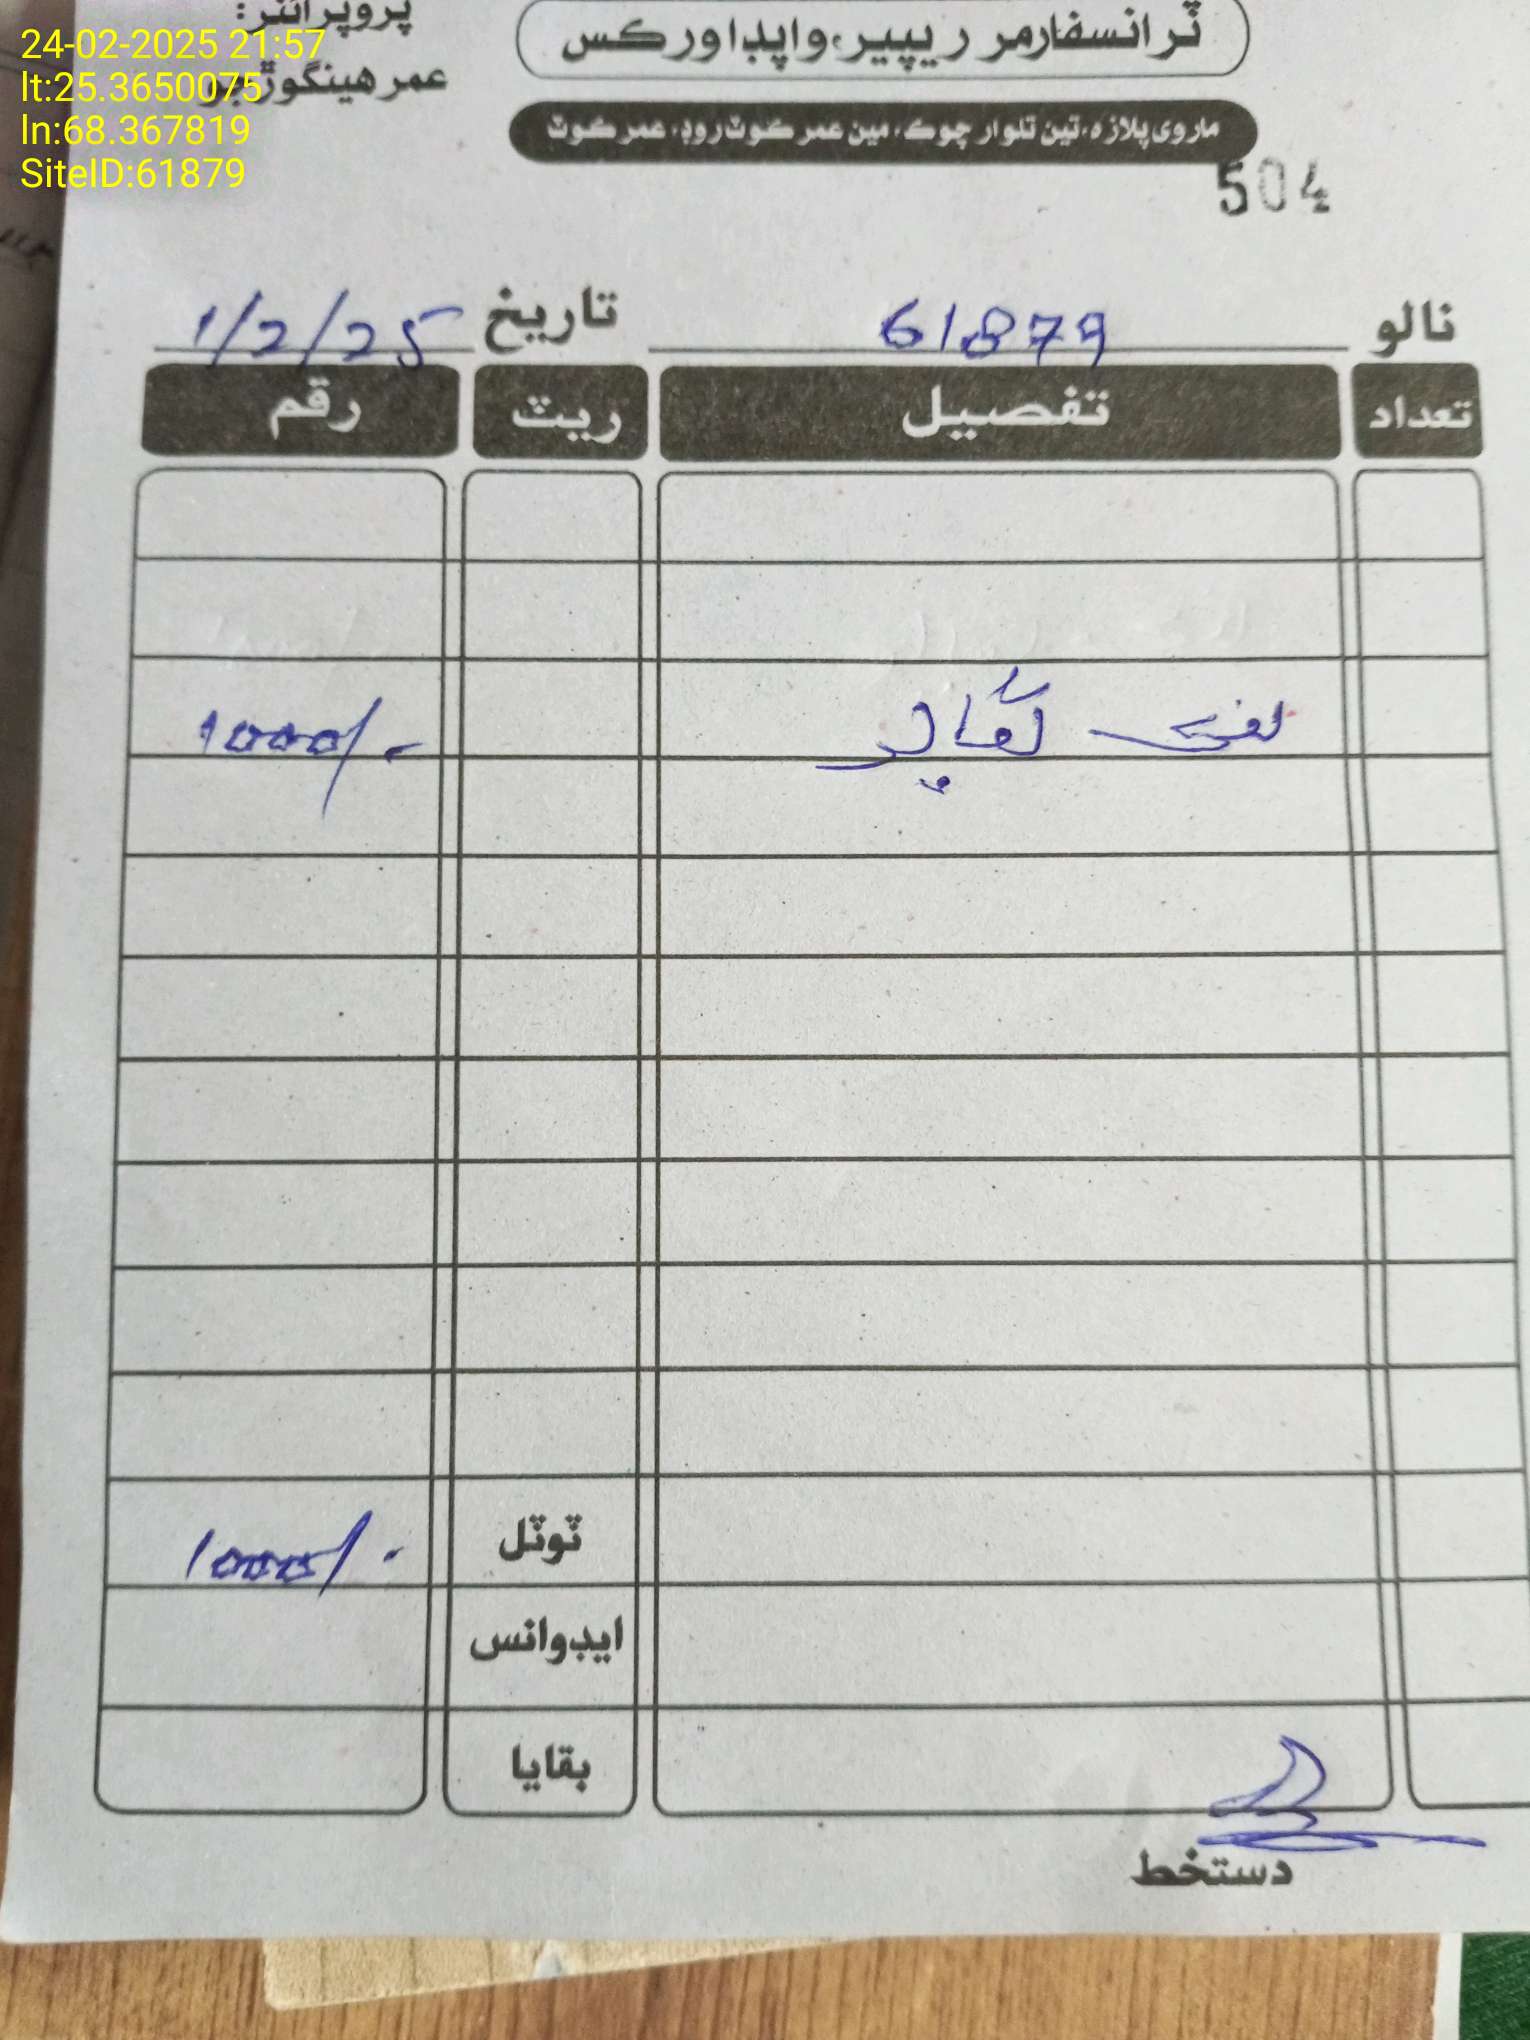 24-02-2025 21:57
lt:25.3650075
ln:68.367819
SiteID:61879
پروپرائٽر:
عمر هينگورجو
ٽرانسفارمر ريپير، واپڊا ورڪس
ماروي پلازه، تين تلوار چوڪ، مين عمر ڪوٽ روڊ، عمر ڪوٽ
504
نالو 61879 تاريخ 1/2/25
تعداد تفصيل ريٽ رقم
1000/-
ٽوٽل 1000/-
ايڊوانس
بقايا
دستخط